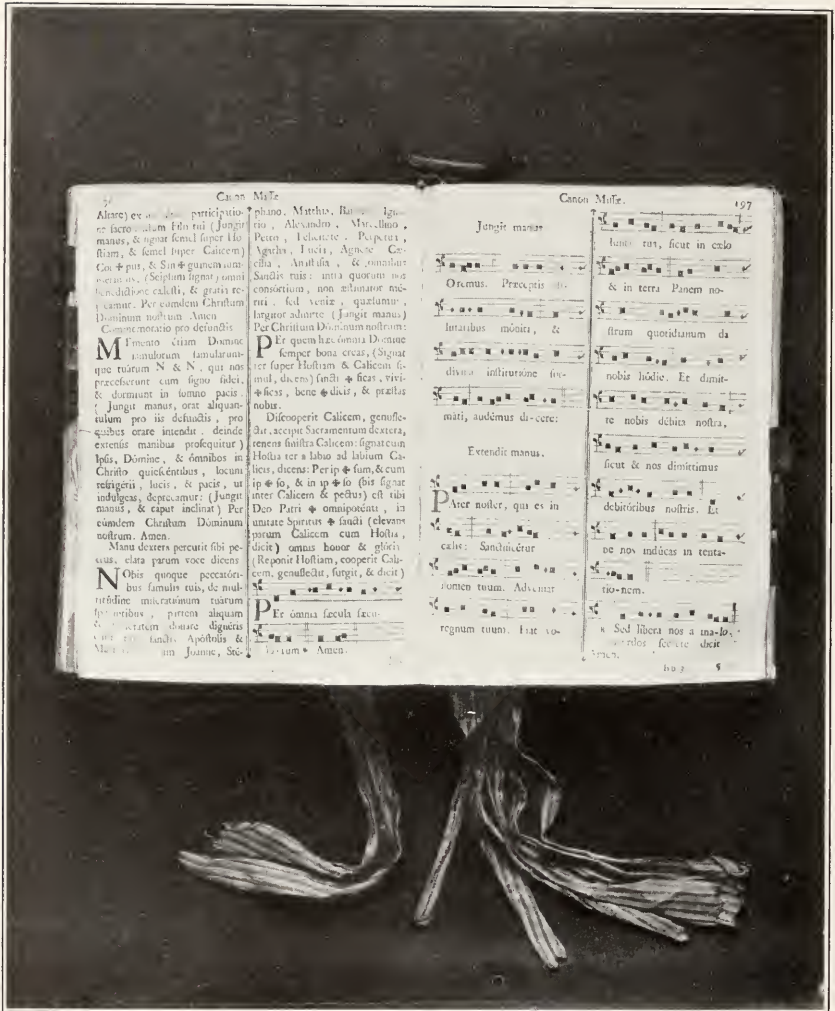 Canon Missæ
Altare) ex participatio-
ne sacro Filii tui (Jungit
manus, & signat semel super Ho
stiam, & semel super Calicem)
Cor ✠ pus, & San ✠ guinem sum-
(Seipsum signat) omni
benedictione cælesti, & gratia re-
. Per eumdem Christum
Dominum nostrum Amen
Commemoratio pro defunctis
MEmento etiam Domine
famulorum famularum-
que tuárum N & N. qui nos
præcesserunt cum signo fidei,
& dormiunt in somno pacis.
( Jungit manus, orat aliquan-
tulum pro iis defunctis, pro
quibus orare intendit, deinde
extensis manibus prosequitur )
Ipsis, Dómine, & ómnibus in
Christo quiescéntibus, locum
refrigérii, lucis, & pacis, ut
indulgeas, deprecamur: (Jungit
manus, & caput inclinat) Per
eúmdem Christum Dóminum
nostrum. Amen.
Manu dextera percutit sibi pe-
ctus, elata parum voce dicens
NObis quoque peccatóri-
bus famulis tuis, de mul-
titúdine miseratiónum tuárum
partem aliquam
donare dignéris
Apóstolis &
Joanne, Sté-
phano, Matthia, Ignatio, Alexandro, Marcellino,
Petro, Felicitate, Perpetua,
Agatha, Lucia, Agnete Cæ-
cilia, Anastasia, & ómnibus
Sanctis tuis: intra quorum nos
consórtium, non æstimator mé-
riti, sed veniæ, quæsumus,
largitor admitte (Jungit manus)
Per Christum Dóminum nostrum:
PEr quem hæc ómnia Domine
semper bona creas, (Signat
ter super Hostiam & Calicem si-
mul, dicens) sancti ✠ ficas, vivi-
✠ ficas, bene ✠ dicis, & præstas
nobis.
Discooperit Calicem, genufle-
ctit, accipit Sacramentum dextera,
tenens sinistra Calicem: signat cum
Hostia ter a labio ad labium Ca-
licis, dicens: Per ip ✠ sum, & cum
ip ✠ so, & in ip ✠ so (bis signat
inter Calicem & pectus) est tibi
Deo Patri ✠ omnipotenti, in
unitate Spiritus ✠ sancti (elevans
parum Calicem cum Hostia,
dicit) omnis honor & glória
(Reponit Hostiam, cooperit Cali-
cem, genuflectit, surgit, & dicit)
PEr ómnia sæcula sæcu-
Amen.
Canon Missæ.
197
Jungit manus
Oremus. Præceptis
lutaribus móniti, &
divina institutióne for-
máti, audémus di-cere:
Extendit manus.
PAter noster, qui es in
cælis: Sanctificétur
nomen tuum. Advéniat
regnum tuum. Fiat vo-
tua, sicut in cælo
& in terra Panem no-
strum quotidianum da
nobis hódie. Et dimit-
te nobis débita nostra,
sicut & nos dimittimus
debitóribus nostris. Et
ne nos indúcas in tenta-
tió-nem.
Sed libera nos a ma-lo,
secrete dicit
Amen.